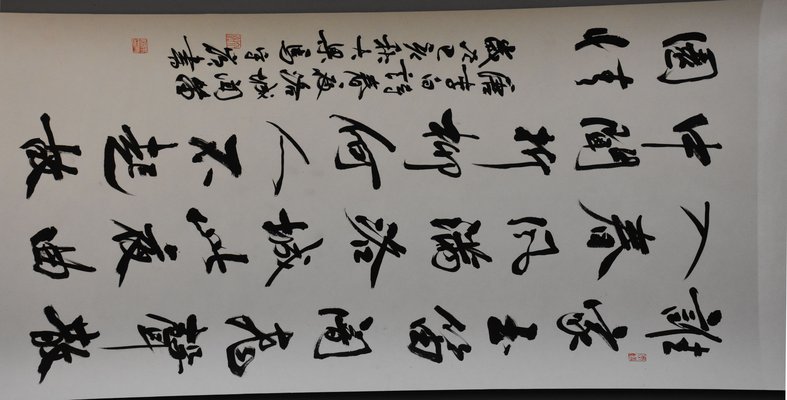 誰家玉笛闇飛聲散
入春風滿洛城此夜曲
中聞折柳何人不起故
園情
唐李白詩春夜洛城聞笛
歲次己亥秋 書